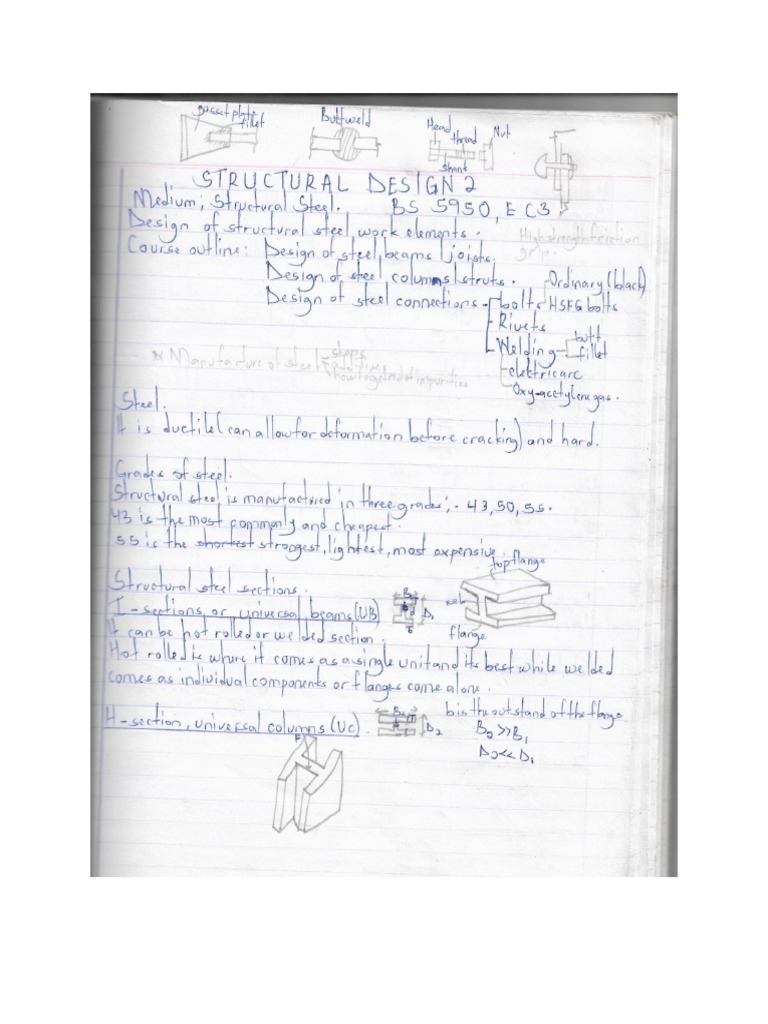 Gusset plate
fillet
Butt weld
Head
thread
Nut
shank
STRUCTURAL DESIGN 2
Medium; Structural Steel. BS 5950, E C3
Design of structural steel work elements.
High strength friction
grip.
Course outline: Design of steel beams / joists.
Design of steel columns / struts.
Design of steel connections - bolts
Ordinary (black)
HSFG bolts
Rivets
Welding
butt
fillet
electric arc
Oxy-acetylene gas.
* Manufacture of steel
steps
how to get rid of impurities
Steel.
It is ductile (can allow for deformation before cracking) and hard.
Grades of steel.
Structural steel is manufactured in three grades; - 43, 50, 55.
43 is the most commonly and cheapest.
55 is the shortest strongest, lightest, most expensive.
top flange
Structural steel sections.
web
I - sections or universal beams (UB)
D1
flange
It can be hot rolled or welded section.
Hot rolled is where it comes as a single unit and its best while welded
comes as individual components or flanges come alone.
b is the outstand of the flange
H - section, universal columns (UC).
D2
B2 >> B1
D2 << D1